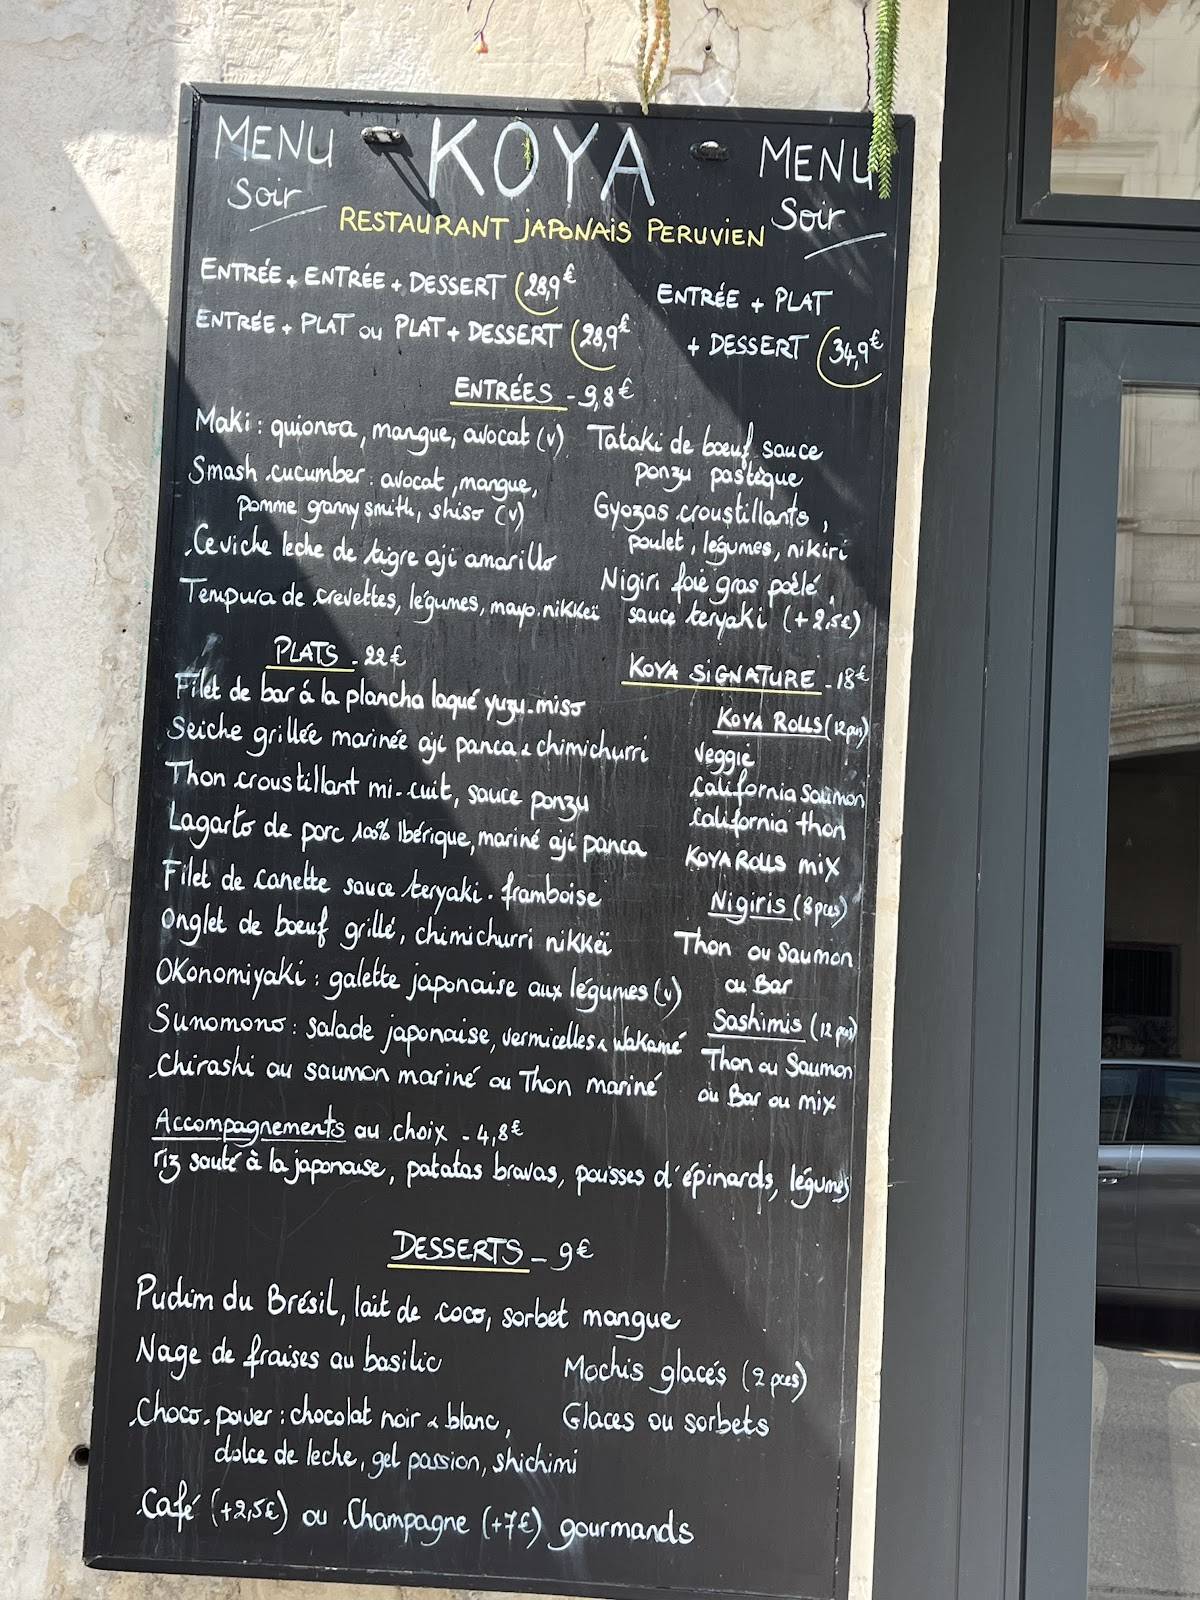 MENU - KOYA - MENU
Soir Soir
RESTAURANT JAPONAIS PERUVIEN
ENTRÉE + ENTRÉE + DESSERT 28,9€
ENTRÉE + PLAT ou PLAT + DESSERT 28,9€
ENTRÉE + PLAT
+ DESSERT 34,9€
ENTRÉES - 9,8€
Maki : quionoa, mangue, avocat (v)
Smash cucumber : avocat, mangue,
pomme granny smith, shiso (v)
Ceviche leche de tigre aji amarillo
Tempura de crevettes, légumes, mayo nikkeï
Tataki de bœuf sauce
ponzu pastèque
Gyozas croustillants,
poulet, légumes, nikiri
Nigiri foie gras poêlé,
sauce teryaki (+2,5€)
PLATS - 22€
Filet de bar á la plancha laqué yuzu-miso
Seiche grillée marinée aji panca & chimichurri
Thon croustillant mi-cuit, sauce ponzu
Lagarto de porc 100% Ibérique, mariné aji panca
Filet de canette sauce teryaki - framboise
Onglet de bœuf grillé, chimichurri nikkeï
Okonomiyaki : galette japonaise aux légumes (v)
Sunomono : salade japonaise, vermicelles & wakamé
Chirashi au saumon mariné ou Thon mariné
KOYA SIGNATURE - 18€
KOYA ROLLS (12 pces)
veggie
California Saumon
California thon
KOYA ROLLS mix
Nigiris (8 pces)
Thon ou Saumon
ou Bar
Sashimis (12 pces)
Thon ou Saumon
ou Bar ou mix
Accompagnements au choix - 4,8€
riz sauté à la japonaise, patatas bravas, pousses d'épinards, légumes
DESSERTS - 9€
Pudim du Brésil, lait de coco, sorbet mangue
Nage de fraises au basilic
Choco-power : chocolat noir & blanc,
dolce de leche, gel passion, shichimi
Mochis glacés (2 pces)
Glaces ou sorbets
Café (+2,5€) ou Champagne (+7€) gourmands